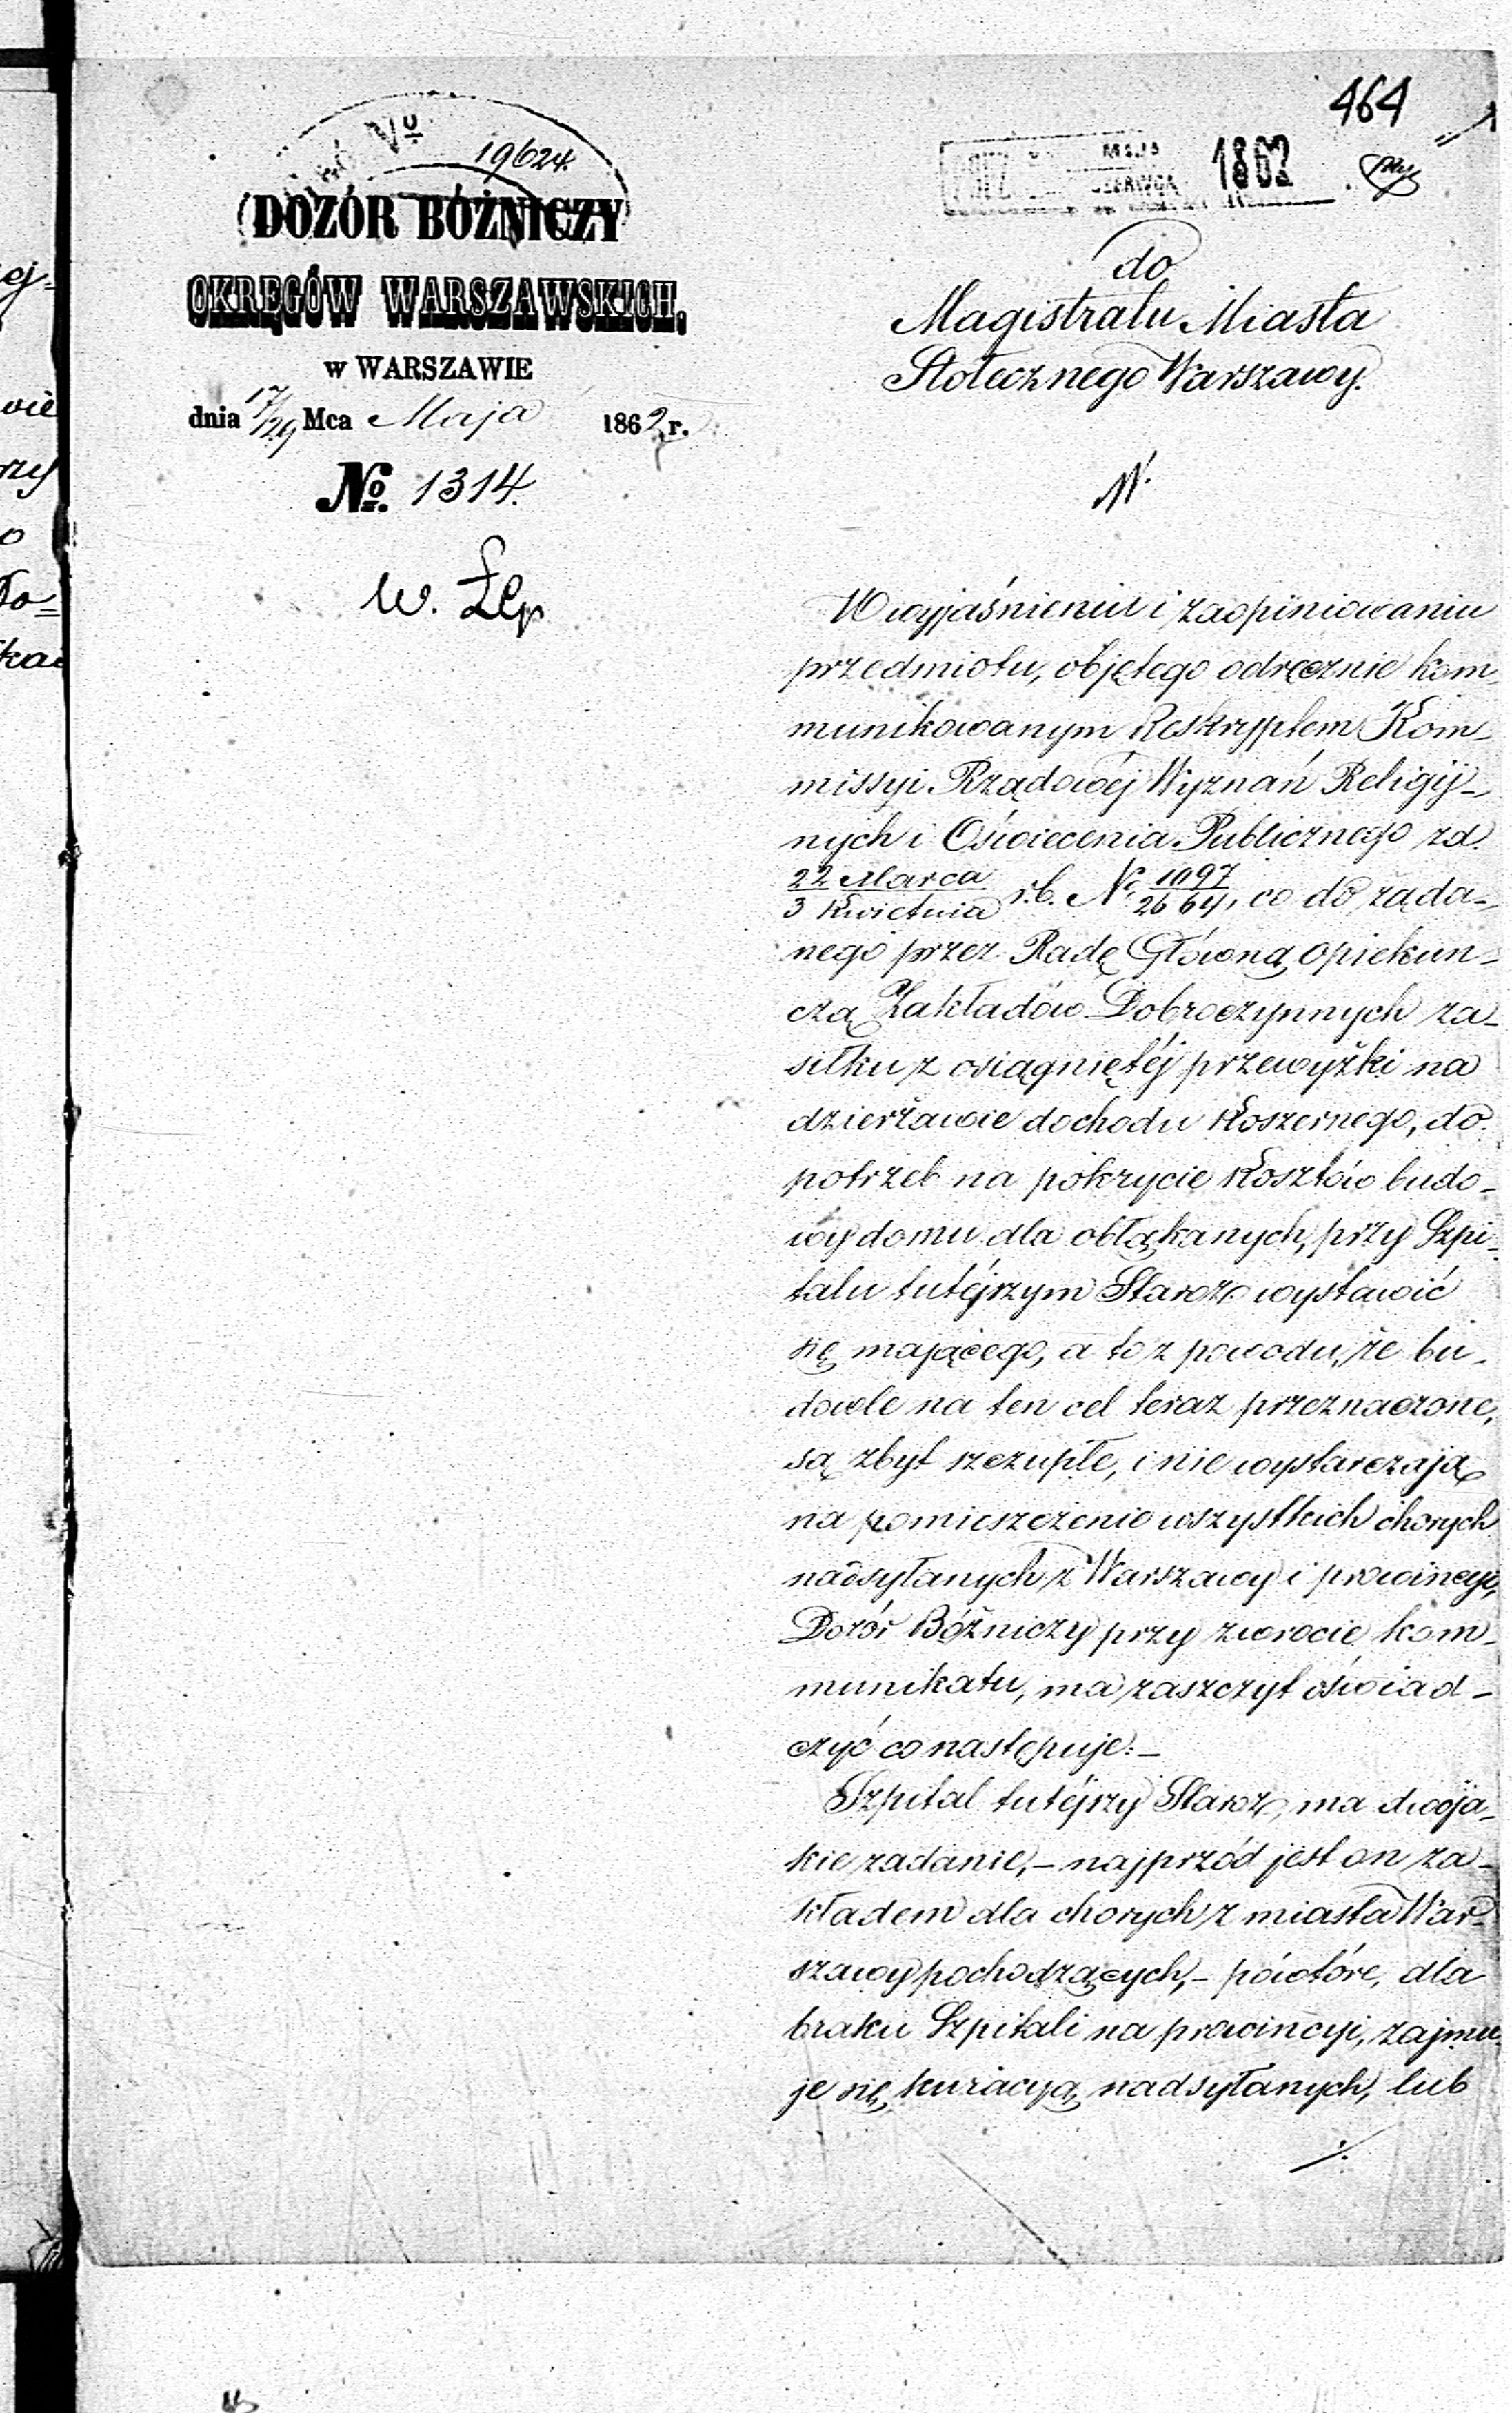 464
No 19624.
MAJA
CZERWCA 1862
DOZÓR BÓŻNICZY
OKRĘGÓW WARSZAWSKICH.
w WARSZAWIE
dnia 17/29 Mca Maja 1862 r.
No. 1314.
do
Magistratu Miasta
Stołecznego Warszawy.
W wyjaśnieniu i zaopiniowaniu
przedmiotu, objętego odręcznie kom-
munikowanym Reskryptem Kom-
missyi Rządowéj Wyznań Religij-
nych i Oświecenia Publicznego zd.
22 Marca/3 Kwietnia r.b. No 1097/2664, co do żąda-
nego przez Radę Główną Opiekun-
czą Zakładów Dobroczynnych za-
siłku z osiągniętéj przewyżki na
dzierżawie dochodu koszernego, do
potrzeb na pokrycie kosztów budo-
wy domu dla obłąkanych, przy Szpi-
talu tutéjszym Staroz. wystawić
się mającego, a to z powodu, że bu-
dowle na ten cel teraz przeznaczone,
są zbyt szczupłe, i nie wystarczają
na pomieszczenie wszystkich chorych
nadsyłanych z Warszawy i prowincyi,
Dozór Bóżniczy przy zwrocie kom-
munikatu, ma zaszczyt oświad-
czyć co następuje:-
Szpital tutéjszy Staroz. ma dwoja-
kie zadanie,- najprzód jest on za-
kładem dla chorych z miasta War-
szawy pochodzących,- powtóre, dla
braku Szpitali na prowincyi, zajmu-
je się kuracyą nadsyłanych, lub
./.